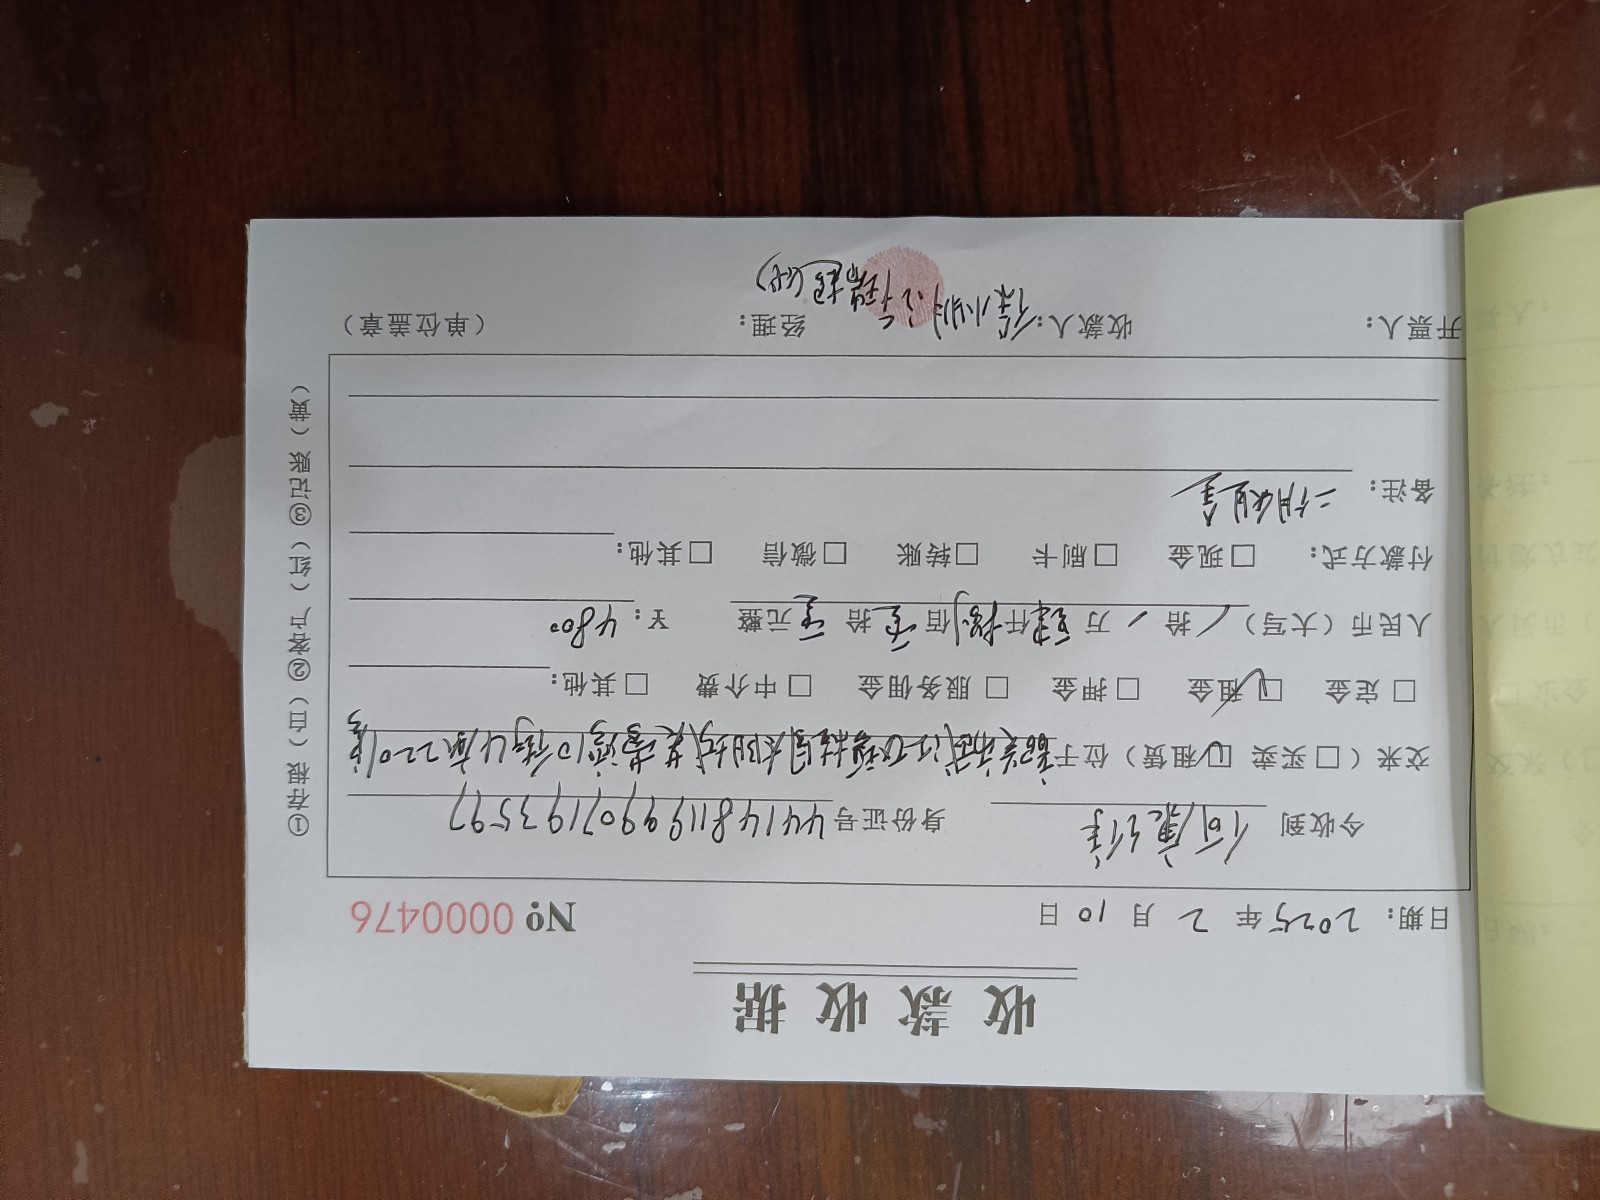 收款收据
日期: 2025 年 2 月 10 日 № 0000476
今收到 何康 身份证号 441481199907193597
交来(□买卖 ☑租赁)位于
□ 定金 ☑ 租金 □ 押金 □ 服务佣金 □ 中介费 □ 其他:
人民币(大写) / 拾 / 万 肆 仟 捌 佰 零 拾 零 元整 ¥: 4800
付款方式: □ 现金 □ 刷卡 □ 转账 □ 微信 □ 其他:
备注: 二个月租金
开票人: 收款人: 经理: (单位盖章)
①存根(白)②客户(红)③记账(黄)